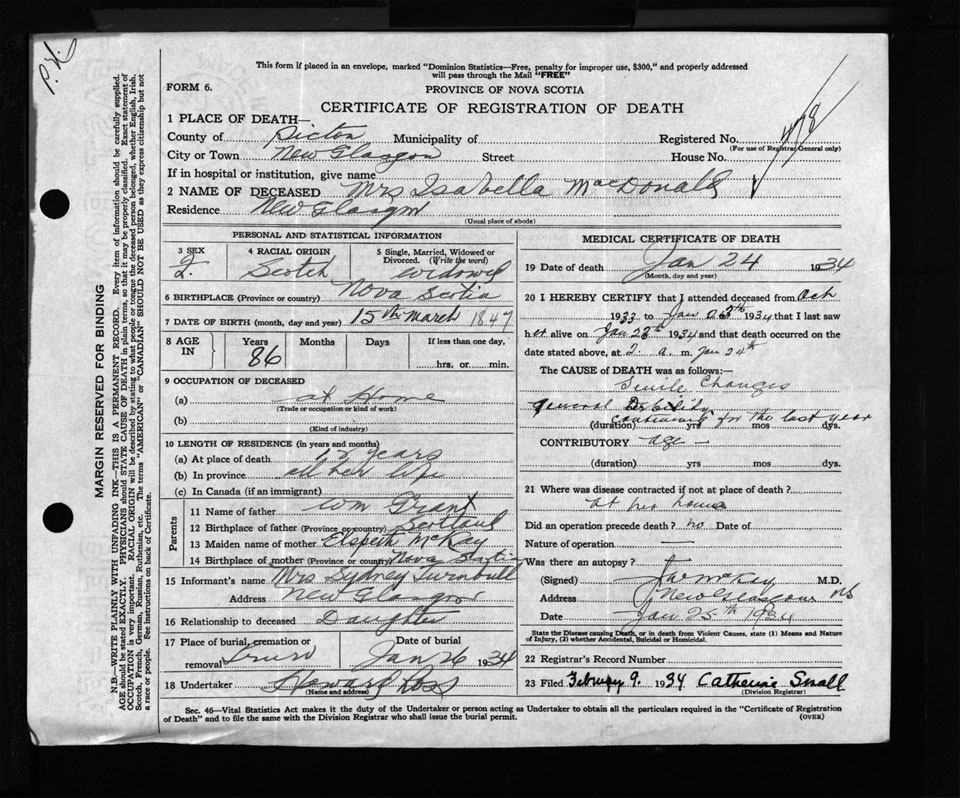 P.X.
This form if placed in an envelope, marked "Dominion Statistics—Free, penalty for improper use, $300," and properly addressed
will pass through the Mail "FREE"
FORM 6.
PROVINCE OF NOVA SCOTIA
CERTIFICATE OF REGISTRATION OF DEATH
MARGIN RESERVED FOR BINDING
N.B.—WRITE PLAINLY WITH UNFADING INK—THIS IS A PERMANENT RECORD. Every item of information should be carefully supplied.
AGE should be stated EXACTLY. PHYSICIANS should STATE CAUSE OF DEATH in plain terms, so that it may be properly classified. Exact statement of
OCCUPATION is very important. RACIAL ORIGIN will be described by stating to what people or tongue the deceased person belonged, whether English, Irish,
Scotch, French, German, Russian, Ruthenian, etc. The terms "AMERICAN" or "CANADIAN" SHOULD NOT BE USED as they express citizenship but not
a race or people. See instructions on back of Certificate.
1 PLACE OF DEATH—
County of Pictou Municipality of Registered No. 478
(For use of Registrar General only)
City or Town New Glasgow Street House No.
If in hospital or institution, give name
2 NAME OF DECEASED Mrs Isabella MacDonald
Residence New Glasgow
(Usual place of abode)
PERSONAL AND STATISTICAL INFORMATION
3 SEX F. 4 RACIAL ORIGIN Scotch 5 Single, Married, Widowed or Divorced. (Write the word) widowed
6 BIRTHPLACE (Province or country) Nova Scotia
7 DATE OF BIRTH (month, day and year) 15th March 1847
8 AGE IN Years 86 Months Days If less than one day, hrs. or min.
9 OCCUPATION OF DECEASED
(a) at Home
(Trade or occupation or kind of work)
(b)
(Kind of industry)
10 LENGTH OF RESIDENCE (in years and months)
(a) At place of death 12 years
(b) In province all her life
(c) In Canada (if an immigrant)
Parents
11 Name of father Wm Grant
12 Birthplace of father (Province or country) Scotland
13 Maiden name of mother Elspeth McKay
14 Birthplace of mother (Province or country) Nova Scotia
15 Informant's name Mrs Sydney Turnbull
Address New Glasgow
16 Relationship to deceased Daughter
17 Place of burial, cremation or removal Truro Date of burial Jan 26 1934
18 Undertaker Howard Ross
(Name and address)
MEDICAL CERTIFICATE OF DEATH
19 Date of death Jan 24 1934
(Month, day and year)
20 I HEREBY CERTIFY that I attended deceased from Oct
1933 to Jan 23th 1934 that I last saw
her alive on Jan 23th 1934 and that death occurred on
date stated above, at 2. a. m. Jan 24th
The CAUSE of DEATH was as follows:—
Senile Changes
general Debility
(duration) continuing for the last year yrs mos dys.
CONTRIBUTORY age —
(duration) yrs mos dys.
21 Where was disease contracted if not at place of death?
At her home
Did an operation precede death? no Date of
Nature of operation —
Was there an autopsy?
(Signed) McKay M.D.
Address New Glasgow NS
Date Jan 25th 1934
State the Disease causing Death, or in death from Violent Causes, state (1) Means and Nature
of Injury, (2) whether Accidental, Suicidal or Homicidal.
22 Registrar's Record Number
23 Filed February 9. 1934 Catharine Small
(Division Registrar)
Sec. 46—Vital Statistics Act makes it the duty of the Undertaker or person acting as Undertaker to obtain all the particulars required in the "Certificate of Registration
of Death" and to file the same with the Division Registrar who shall issue the burial permit.
(OVER)